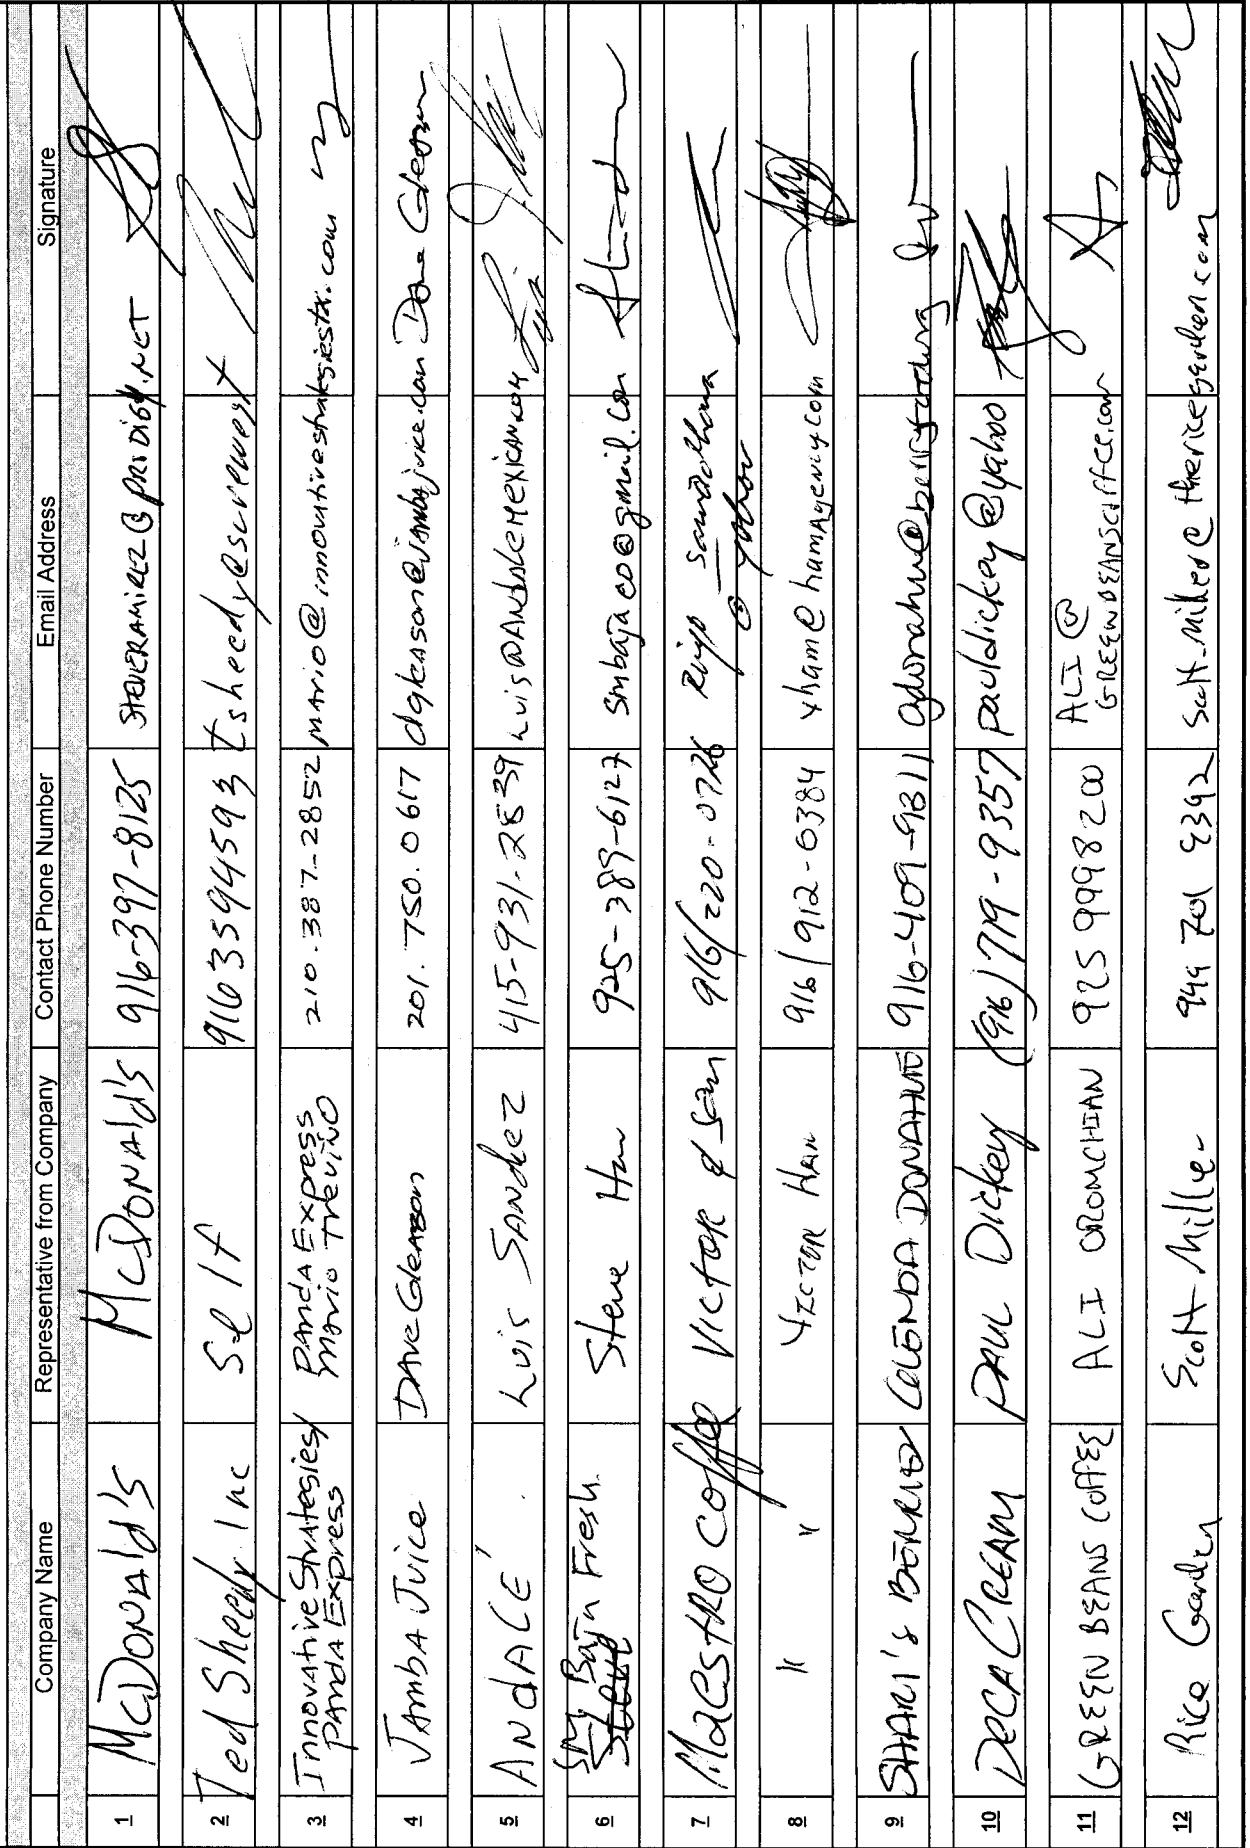 Company Name Representative from Company Contact Phone Number Email Address Signature
1 McDONAld's McDONAld's 916-397-8125 STEVERAMIREZ@PRODIGY.NET
2 Ted Sheedy Inc Self 9163359459 tsheedy@surewest
3 Innovative Strategies/ PANDA EXPRESS 210.387.2852 MARIO@innovativestrategiestx.com
PANDA EXPRESS MARIO TREVINO
4 JAMBA JUICE DAVE GLEASON 201.750.0617 dgleason@jambajuice.com Dave Gleason
5 ANDALÉ LUIS SANCHEZ 415-931-2539 LUIS@ANDALEMEXICAN.COM
6 SM Baja Fresh Steve Ham 925-389-6127 smbajaco@gmail.com
7 Maestro Coffee VICTOR & Sam 916/220-0726
@ yahoo
8 " " HAM 916/912-0384 vham@hamagency.com
9 SHARI'S BERRIES GLENDA DONAHUE 916-409-9311
10 DECA CREAM PAUL Dickey (916)719-9357 pauldickey@yahoo
11 GREEN BEANS COFFEE ALI OROMCHIAN 925 999 8200 ALI@
GREENBEANSCOFFEE.COM
12 Rice Garden Scott Miller 949 701 scott.miller@thericegarden.com